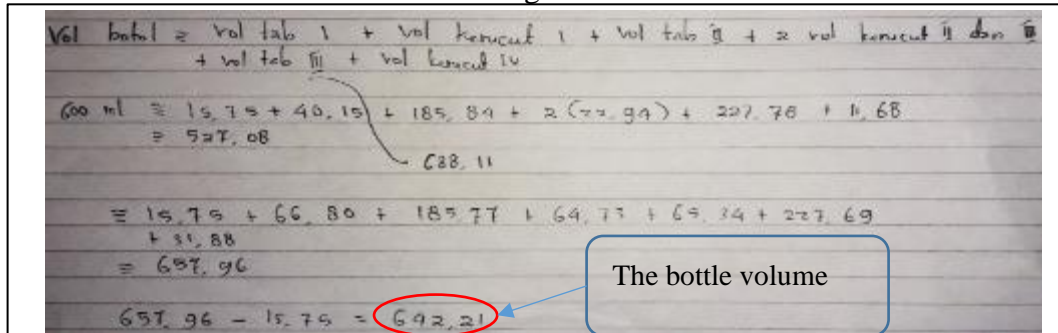 Vol botol = vol tab I + vol kerucut I + vol tab II + 2 vol kerucut II dan III
+ vol tab III + vol kerucut IV
600 ml = 15,75 + 40,15 + 185,84 + 2 (22,94) + 227,78 + 11,68
= 527,08
638,11
= 15,75 + 66,80 + 185,77 + 64,73 + 65,34 + 227,69
+ 31,88
= 657,96
The bottle volume
657,96 - 15,75 = 642,21